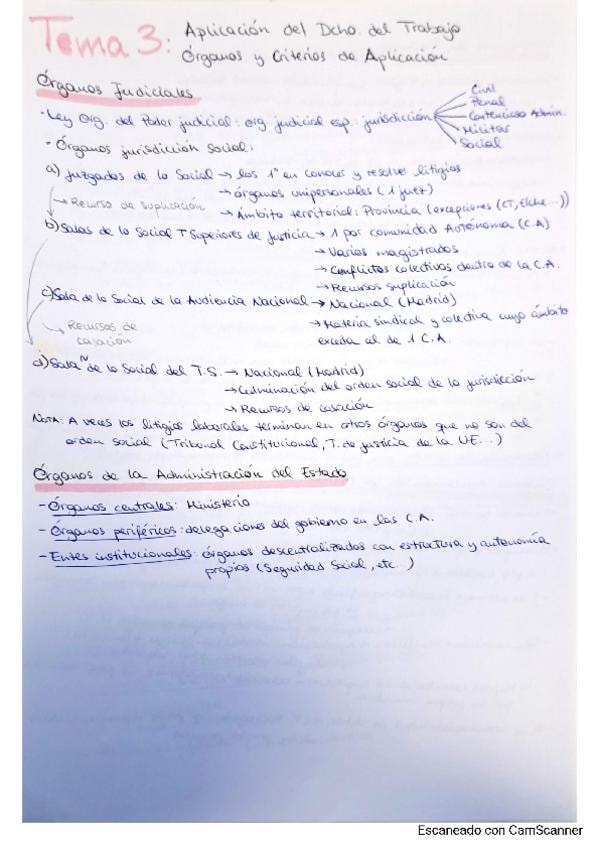 Tema 3: Aplicación del Dcho. del Trabajo
Órganos y Criterios de Aplicación
Órganos Judiciales
- Ley Org. del Poder judicial: org judicial esp: jurisdicción
Civil
Penal
Contencioso Admin.
Militar
Social
- Órganos jurisdicción social:
a) Juzgados de lo Social → los 1º en conocer y resolve litigios
→ órganos unipersonales (1 juez)
→ Recurso de suplicación
→ Ámbito territorial: Provincia (excepciones (CT, Elche...))
b) Salas de lo Social T Superiores de Justicia → 1 por comunidad Autónoma (C.A)
→ Varios magistrados
→ Conflictos colectivos dentro de la C.A.
→ Recursos suplicación
c) Sala de lo Social de la Audiencia Nacional → Nacional (Madrid)
→ Materia sindical y colectiva cuyo ámbito
exceda al de 1 C.A.
→ Recursos de
casación
d) Sala de lo Social del T.S. → Nacional (Madrid)
→ Culminación del orden social de la jurisdicción
→ Recursos de casación
NOTA: A veces los litigios laborales terminan en otros órganos que no son del
orden social (Tribunal Constitucional, T. de justicia de la UE...)
Órganos de la Administración del Estado
- Órganos centrales: Ministerio
- Órganos periféricos: delegaciones del gobierno en las C.A.
- Entes institucionales: órganos descentralizados con estructura y autonomía
propios (Seguridad Social, etc...)
Escaneado con CamScanner